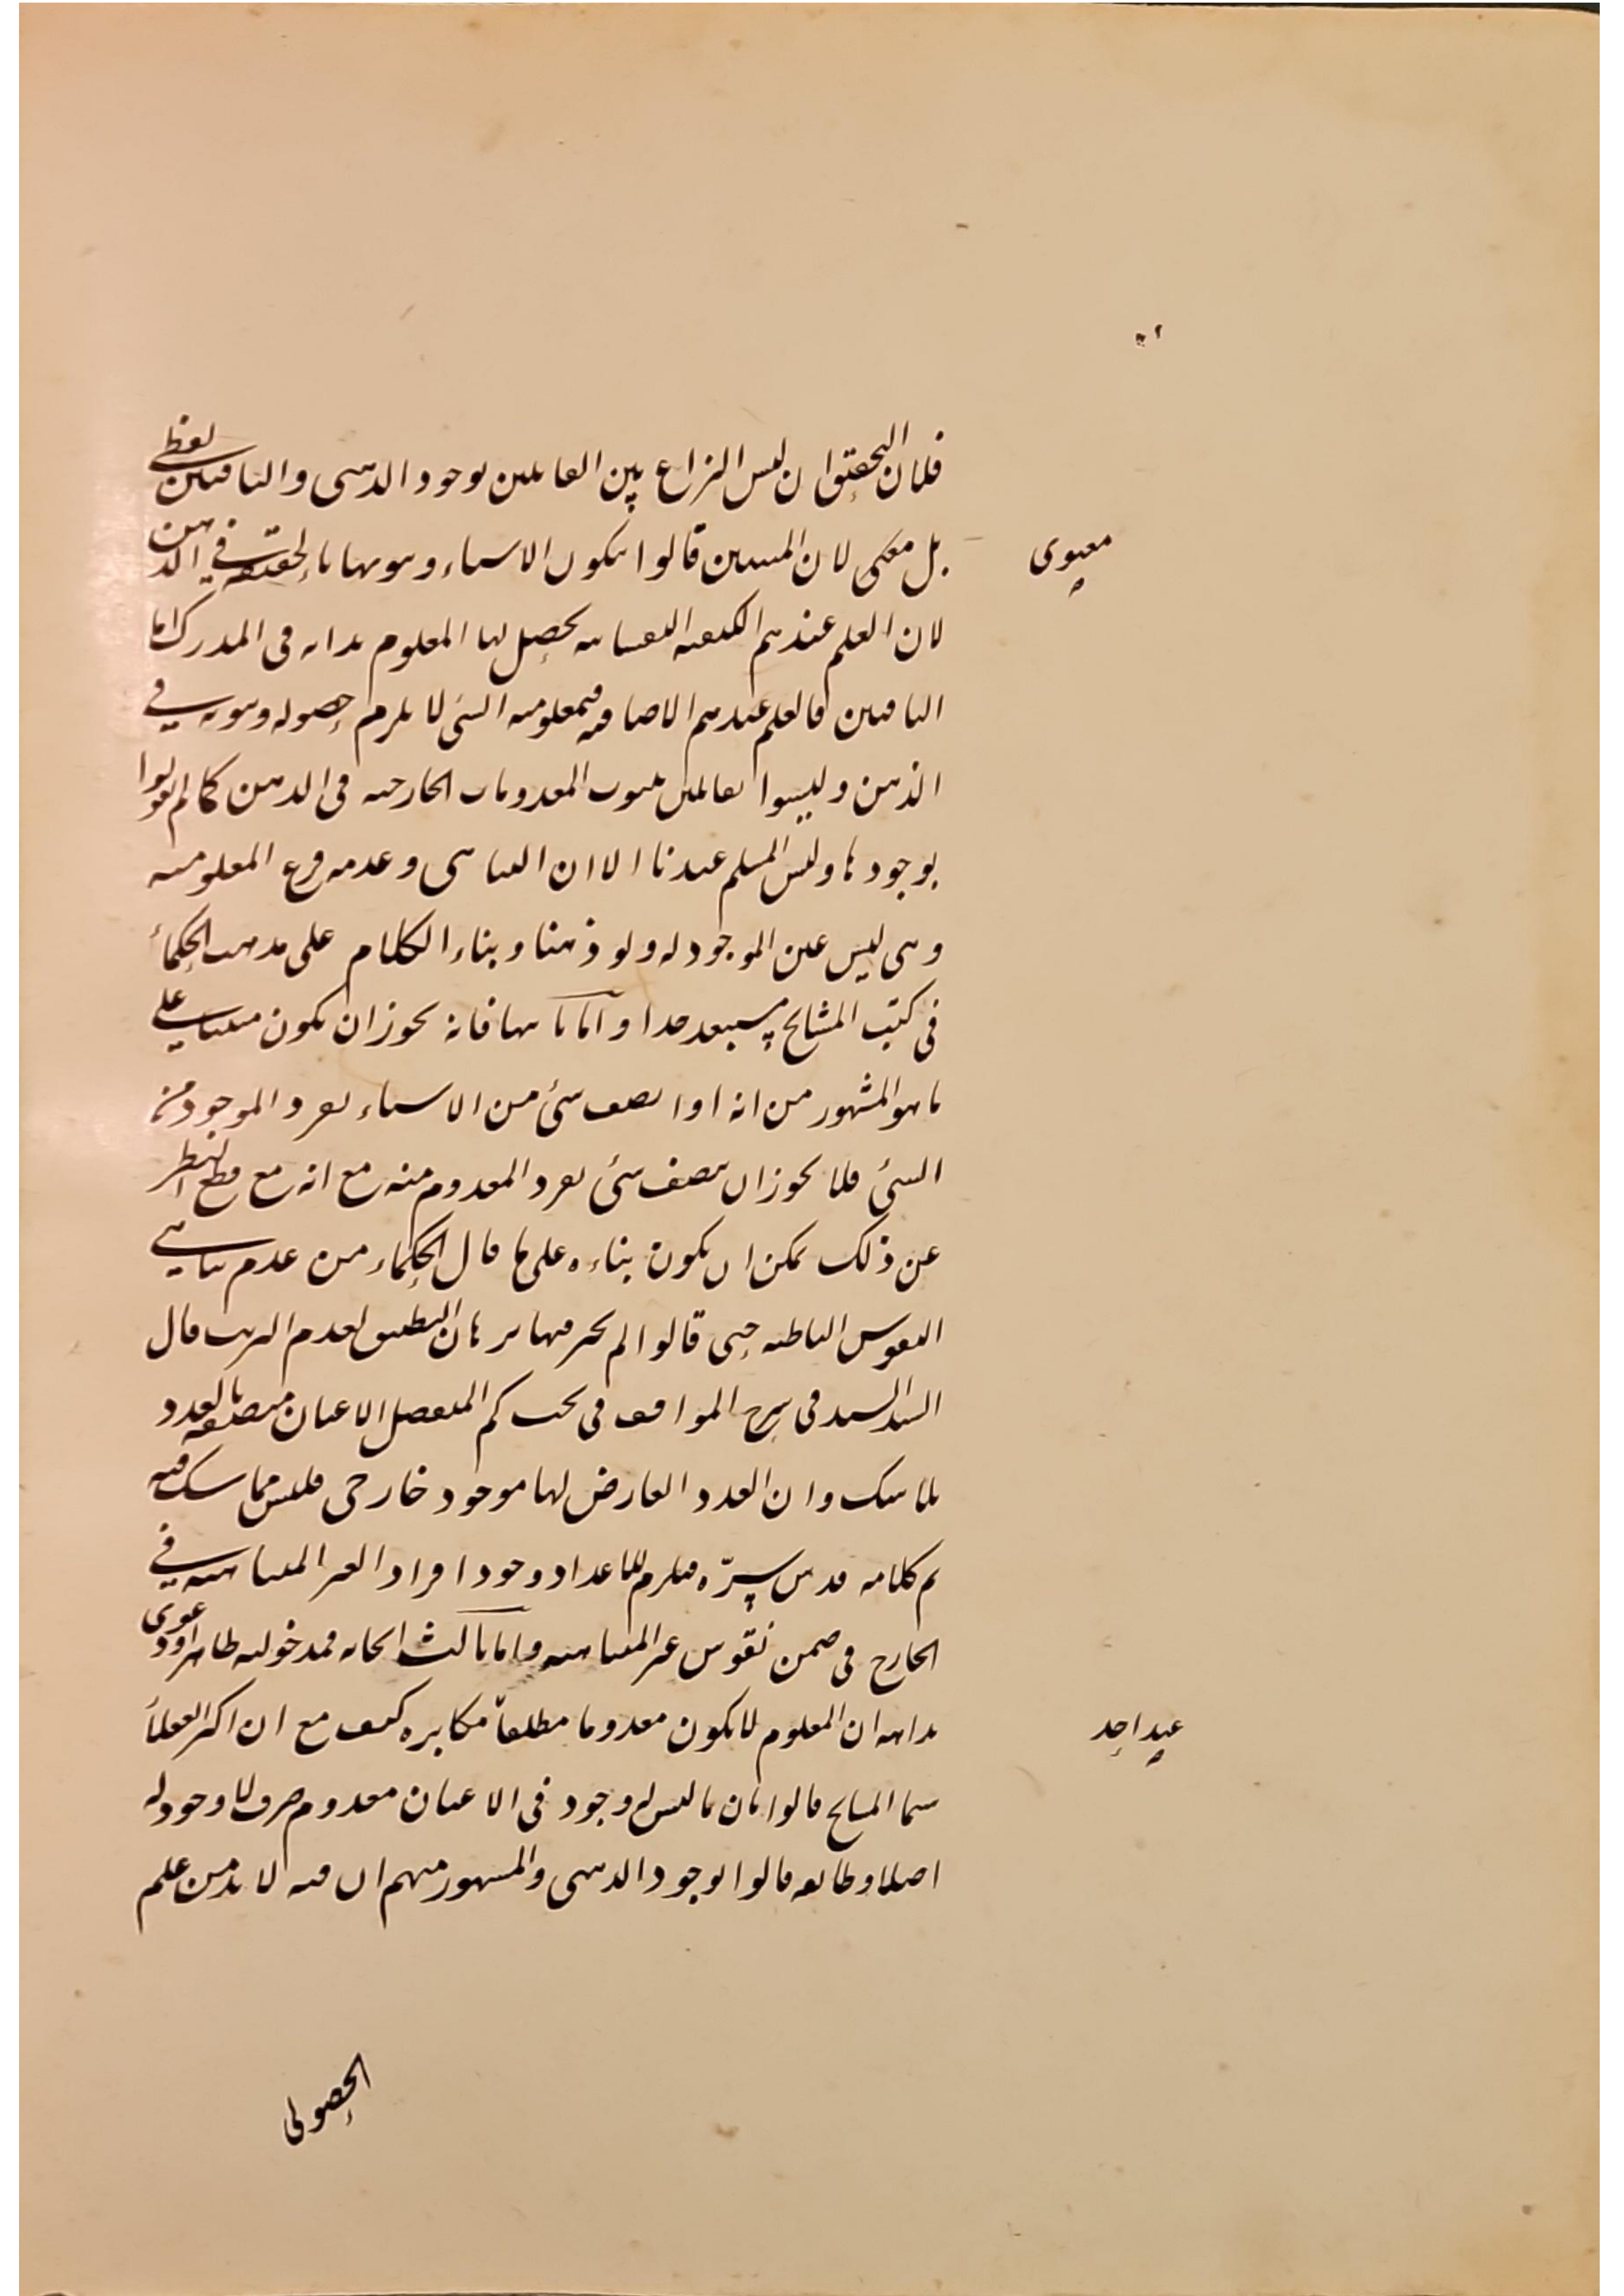 فلان التحقيق ان ليس النزاع بين القائلين بوجود الذهني والنافين لفظي
بل معنى لان المثبتين قالوا بكون الاشياء وهوياتها بالحقيقة في الذهن
معنوي
لان العلم عندهم الكيفية النفسانية يحصل لها المعلوم بذاته في المدرك اما
النافين فالعلم عندهم الاضافة فمعلومية الشئ لا يلزم حصوله وهويته في
الذهن وليسوا بقائلين بثبوت المعدومات الخارجية في الذهن كما لم يقولوا
بوجودها وليس المسلم عندنا الا ان التناهي وعدمه فرع المعلومية
وهي ليس عين الموجودية ولو ذهنا وبناء الكلام على مذهب الحكماء
في كتب المشايخ مستبعد جدا واما ثانيا فانه يجوز ان يكون مبنيا على
ما هو المشهور من انه اذا اتصف شئ من الاشياء بفرد الموجود من
الشئ فلا يجوز ان يتصف شئ بفرد المعدوم منه مع انه مع قطع النظر
عن ذلك يمكن ان يكون بناءه على ما قال الحكماء من عدم تناهي
النفوس الناطقة حتى قالوا لم يجر فيها برهان التطبيق لعدم الترتب قال
السيد السند في شرح المواقف في بحث كم المنفصل الاعيان متصفة بالعدد
بلا شك وان العدد العارض لها موجود خارجي فليس مما يشك فيه
تم كلامه قدس سرّه فيلزم للاعداد وجود افراد الغير المتناهية في
الخارج في ضمن نفوس غير المتناهية واما ثالثا فمدخولية ظاهر او دعوى
بداهة ان المعلوم لا يكون معدوما مطلقا مكابرة كيف مع ان اكثر العقلاء
عند احد
سيما المشايخ قالوا بان ما ليس له وجود في الاعيان معدوم صرف لا وجود له
اصلا وطائفة قالوا بوجود الذهني والمشهور منهم ان فيه لا بد من علم
الحصولى